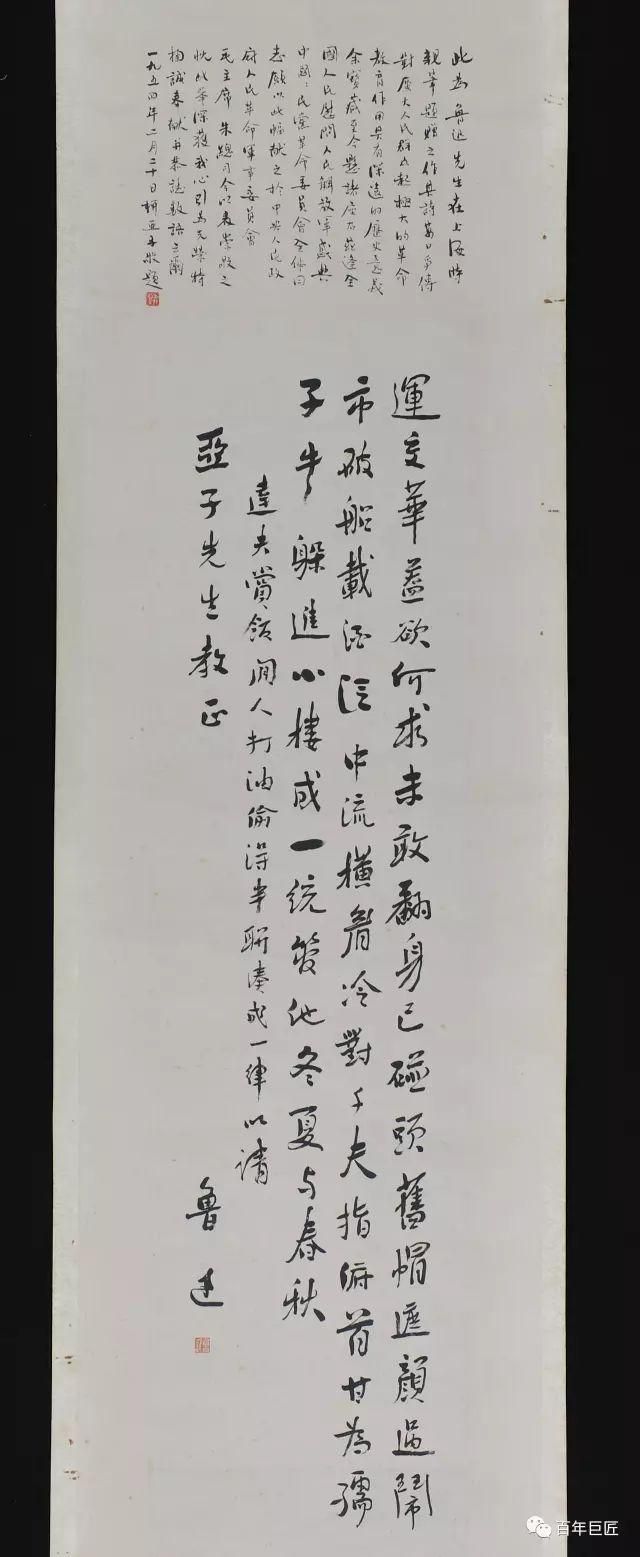 此为鲁迅先生在上海时
亲笔题赠之作其诗万口争传
对广大人民群众起极大的革命
教育作用具有深远的历史意义
余宝藏至今悬诸座右兹逢全
國人民慰問人民解放军盛典
中國國民黨革命委員會全体同
志願以此幅献之於中央人民政
府人民革命軍事委員會
毛主席 朱總司令以表崇敬之
忱此举深獲我心引為光榮特
掬誠奉献并恭誌数語云爾
一九五四年二月二十日柳亞子敬題
運交華蓋欲何求未敢翻身已碰頭舊帽遮顔過鬧
市破船載酒泛中流橫眉冷對千夫指俯首甘為孺
子牛躲進小樓成一統管他冬夏与春秋
達夫賞飯閒人打油偷得半聯湊成一律以請
亞子先生教正
魯迅
百年巨匠